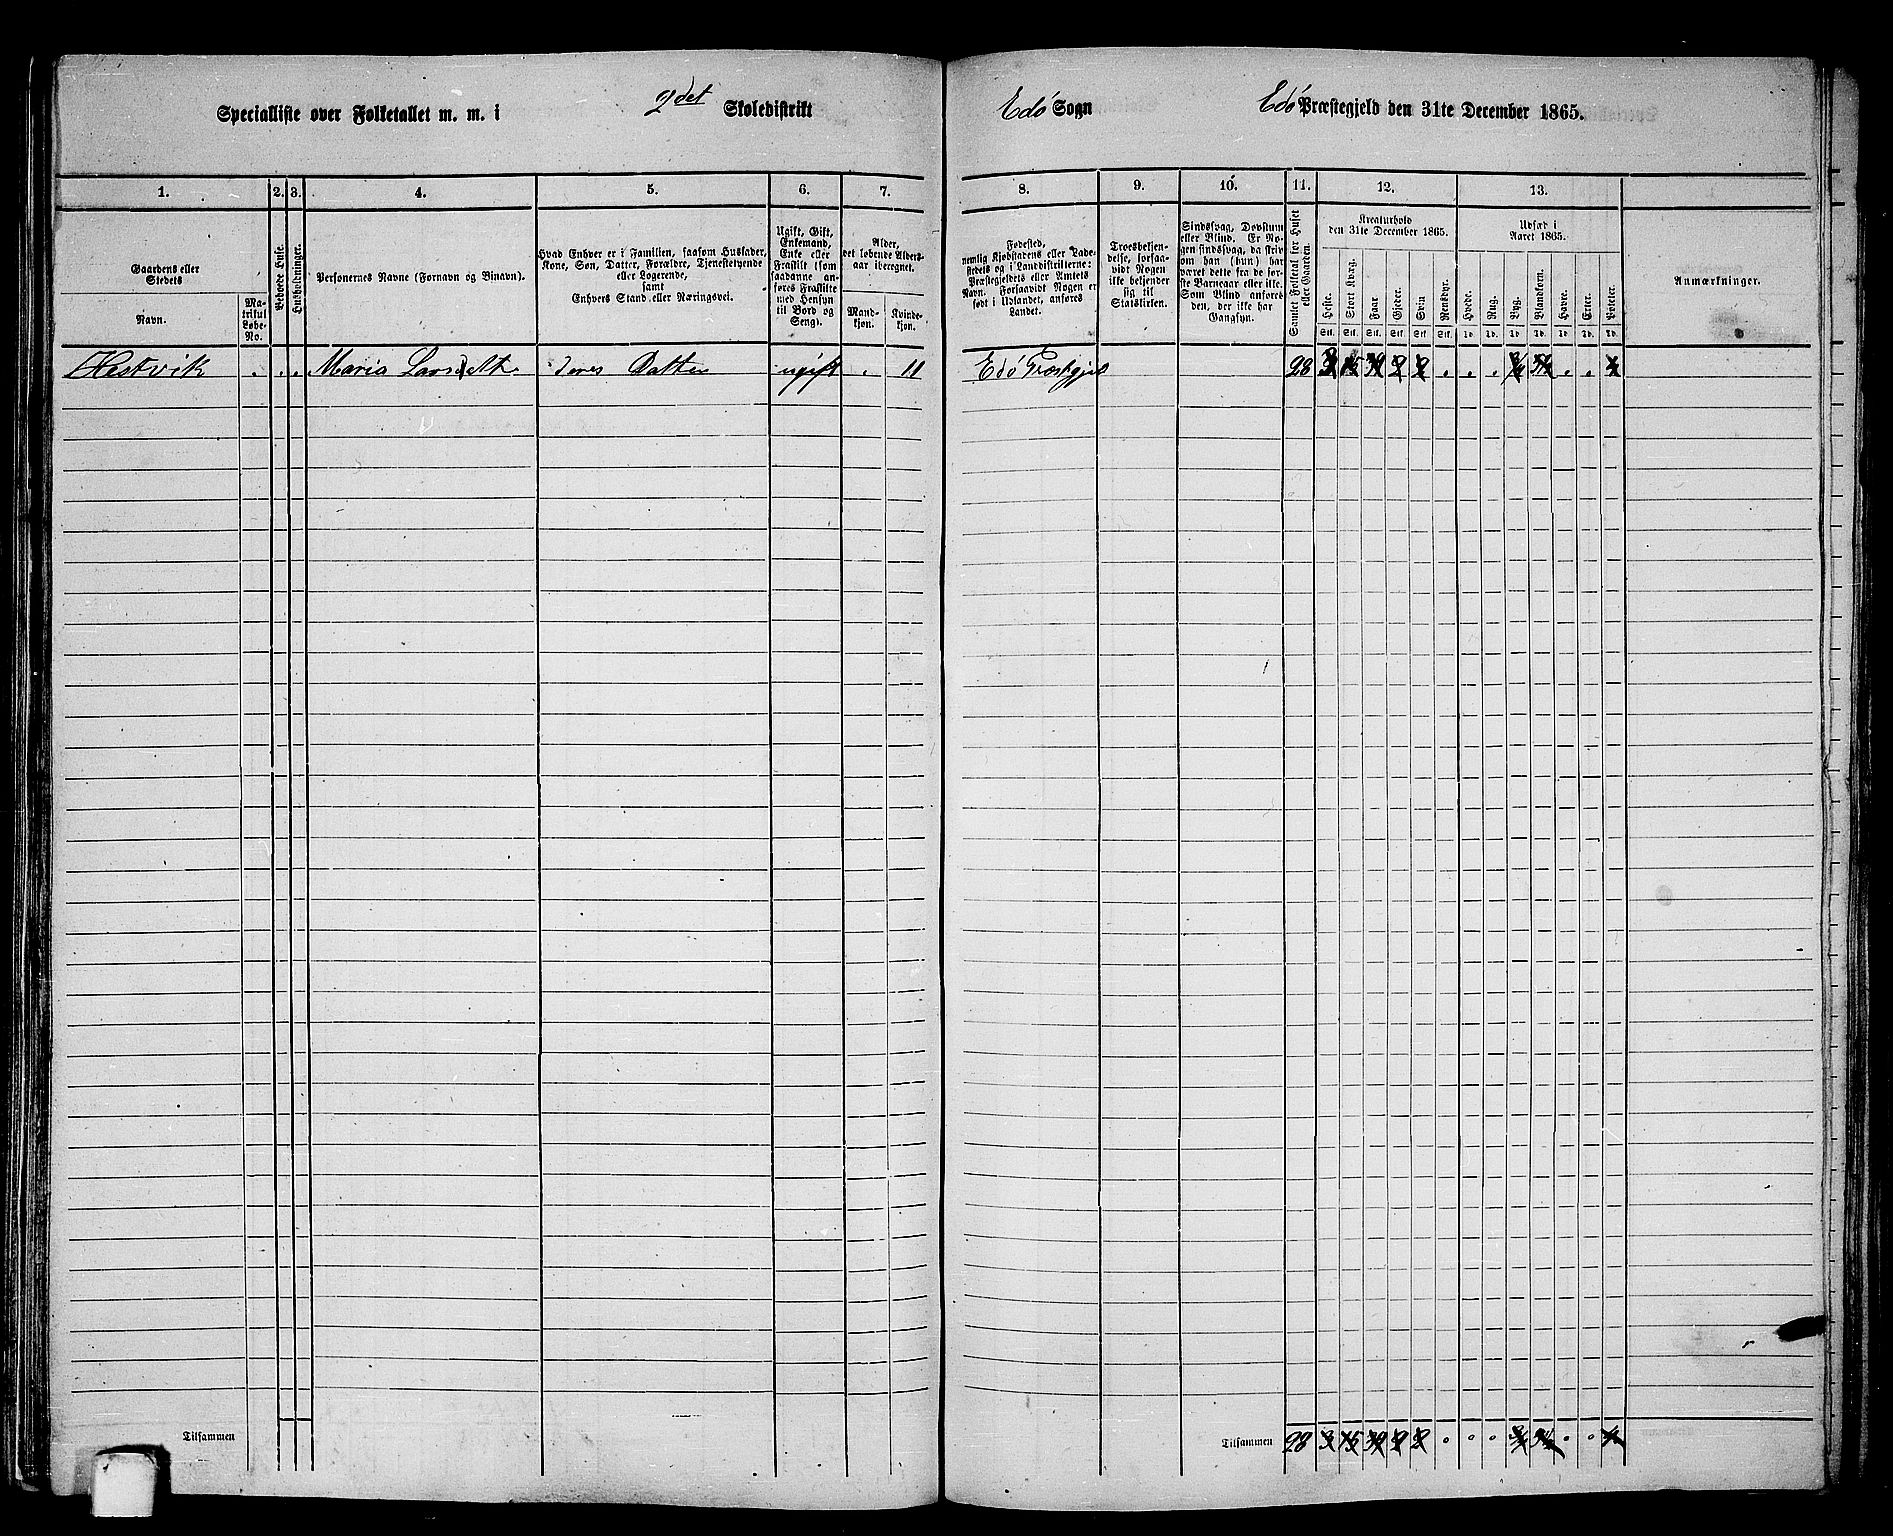 Specialliste over Folketallet m. m. i 2det Skoledistrikt Edö Sogn Edö Præstegjeld den 31te December 1865.
1. 2. 3. 4. 5. 6. 7. 8. 9. 10. 11. 12. 13.
Gaardens eller
Stedets
Navn.
Ma-
trikul
Løbe-
No.
Beboede Huse.
Husholdninger.
Personernes Navne (Fornavn og Binavn).
Hvad Enhver er i Familien, saasom Husfader,
Kone, Søn, Datter, Forældre, Tjenestetyende
eller Logerende,
samt
Enhvers Stand eller Næringsvei.
Ugift, Gift,
Enkemand,
Enke eller
Fraskilt (som
saadanne an-
føres Fraskilte
med Hensyn
til Bord og
Seng).
Alder,
det løbende Alders-
aar iberegnet.
Mand-
kjøn.
Kvinde-
kjøn.
Fødested,
nemlig Kjøbstadens eller Lade-
stedets og i Landdistrikterne:
Præstegjeldets eller Amtets
Navn. Forsaavidt Nogen er
født i Udlandet, anføres
Landet.
Troesbekjen-
delse, forsaa-
vidt Nogen
ikke bekjender
sig til
Statskirken.
Sindssvag, Døvstum
eller Blind. Er No-
gen sindssvag, da skriv-
es om han (hun) har
været dette fra de før-
ste Barneaar eller ikke.
Som Blind anføres
den, der ikke har
Gangsyn.
Samlet Folketal for Huset
eller Gaarden.
Kreaturhold
den 31te December 1865.
Heste.
Stort Kvæg.
Faar
Gjeder.
Svin
Rensdyr.
Stk. Stk. Stk. Stk. Stk. Stk.
Udsæd i
Aaret 1865.
Hvede.
Rug.
Byg.
Blandkorn.
Havre.
Erter.
Poteter.
Td. Td. Td. Td. Td. Td. Td.
Anmærkninger.
Hestvik . . . Maria Larsdttr deres Datter ugift . 11 Edö Præstgjel 28 3 15 39 2 2 . . .
Tilsammen
Tilsammen 28 3 15 39 2 2